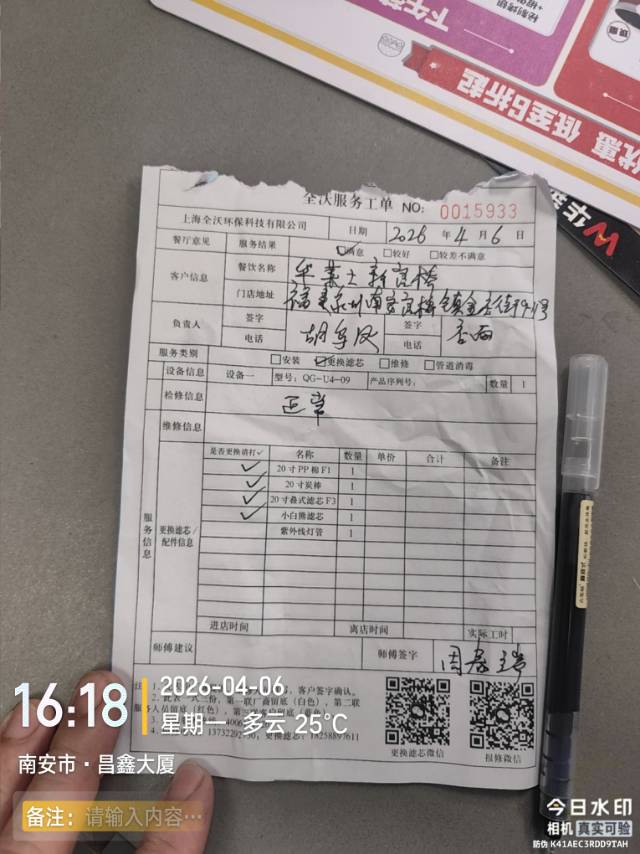 下午
低至6折起
优惠
华
全沃服务工单 NO: 0015933
上海全沃环保科技有限公司 日期 2026 年 4 月 6 日
餐厅意见 服务结果 ☑满意 □较好 □较差不满意
客户信息 餐饮名称 华莱士新官桥
门店地址 福建泉州南安官桥镇金杏街19-11号
负责人 签字 签字
电话 电话
服务类别 □安装 ☑更换滤芯 □维修 □管道消毒
设备信息 设备一 型号: QG-U4-09 产品序列号: 数量 1
检修信息 正常
维修信息
服务信息
更换滤芯/配件信息
是否更换请打✓ 名称 数量 单价 合计 备注
✓ 20寸PP棉F1 1
✓ 20寸炭棒 1
✓ 20寸叠式滤芯F3 1
✓ 小白熊滤芯 1
紫外线灯管 1
进店时间 离店时间 实际工时
师傅建议 师傅签字
客户签字确认。
第一联厂商留底（白色），第二联
服务人员留底（红色），第三联客户留底
更换滤芯: 18258897611
更换滤芯微信 报修微信
16:18
2026-04-06
星期一 多云 25°C
南安市·昌鑫大厦
备注: 请输入内容···
今日水印
相机 真实可验
防伪 K41AEC3RDD9TAH